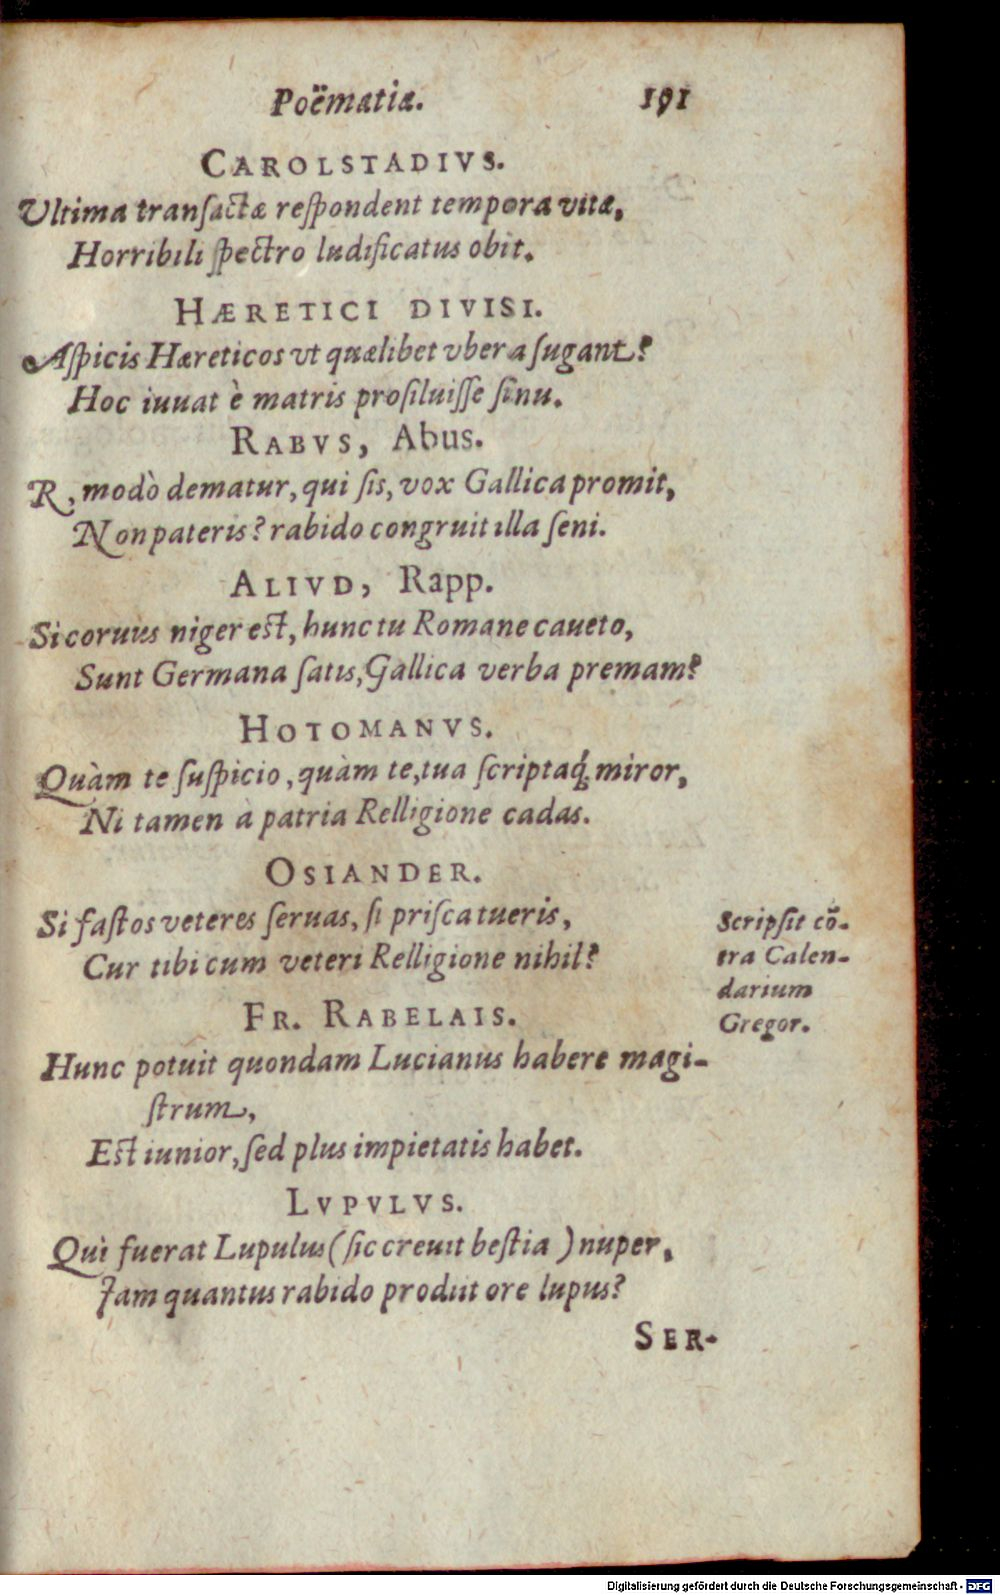 Poëmatia. 191
CAROLSTADIVS.
Vltima transactæ respondent tempora vitæ,
Horribili spectro ludificatus obit.
HÆRETICI DIVISI.
Aspicis Hæreticos vt quælibet vbera sugant?
Hoc iuuat è matris prosiluisse sinu.
RABVS, Abus.
R, modò dematur, qui sis, vox Gallica promit,
Non pateris? rabido congruit illa seni.
ALIVD, Rapp.
Si coruus niger est, hunc tu Romane caueto,
Sunt Germana satis, Gallica verba premam?
HOTOMANVS.
Quàm te suspicio, quàm te, tua scriptaq́; miror,
Ni tamen à patria Relligione cadas.
OSIANDER.
Si fastos veteres seruas, si prisca tueris,
Cur tibi cum veteri Relligione nihil?
Scripsit cō-
tra Calen-
darium
Gregor.
FR. RABELAIS.
Hunc potuit quondam Lucianus habere magi-
strum,
Est iunior, sed plus impietatis habet.
LVPVLVS.
Qui fuerat Lupulus (sic creuit bestia) nuper,
Jam quantus rabido prodiit ore lupus?
SER-
Digitalisierung gefördert durch die Deutsche Forschungsgemeinschaft - DFG